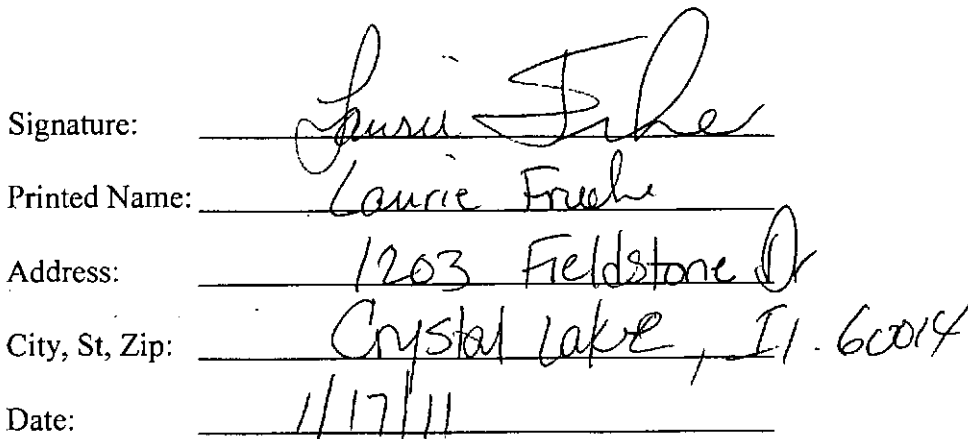 Signature: Laurie
Printed Name: Laurie Fruehe
Address: 1203 Fieldstone Dr
City, St, Zip: Crystal Lake, Il. 60014
Date: 1/17/11